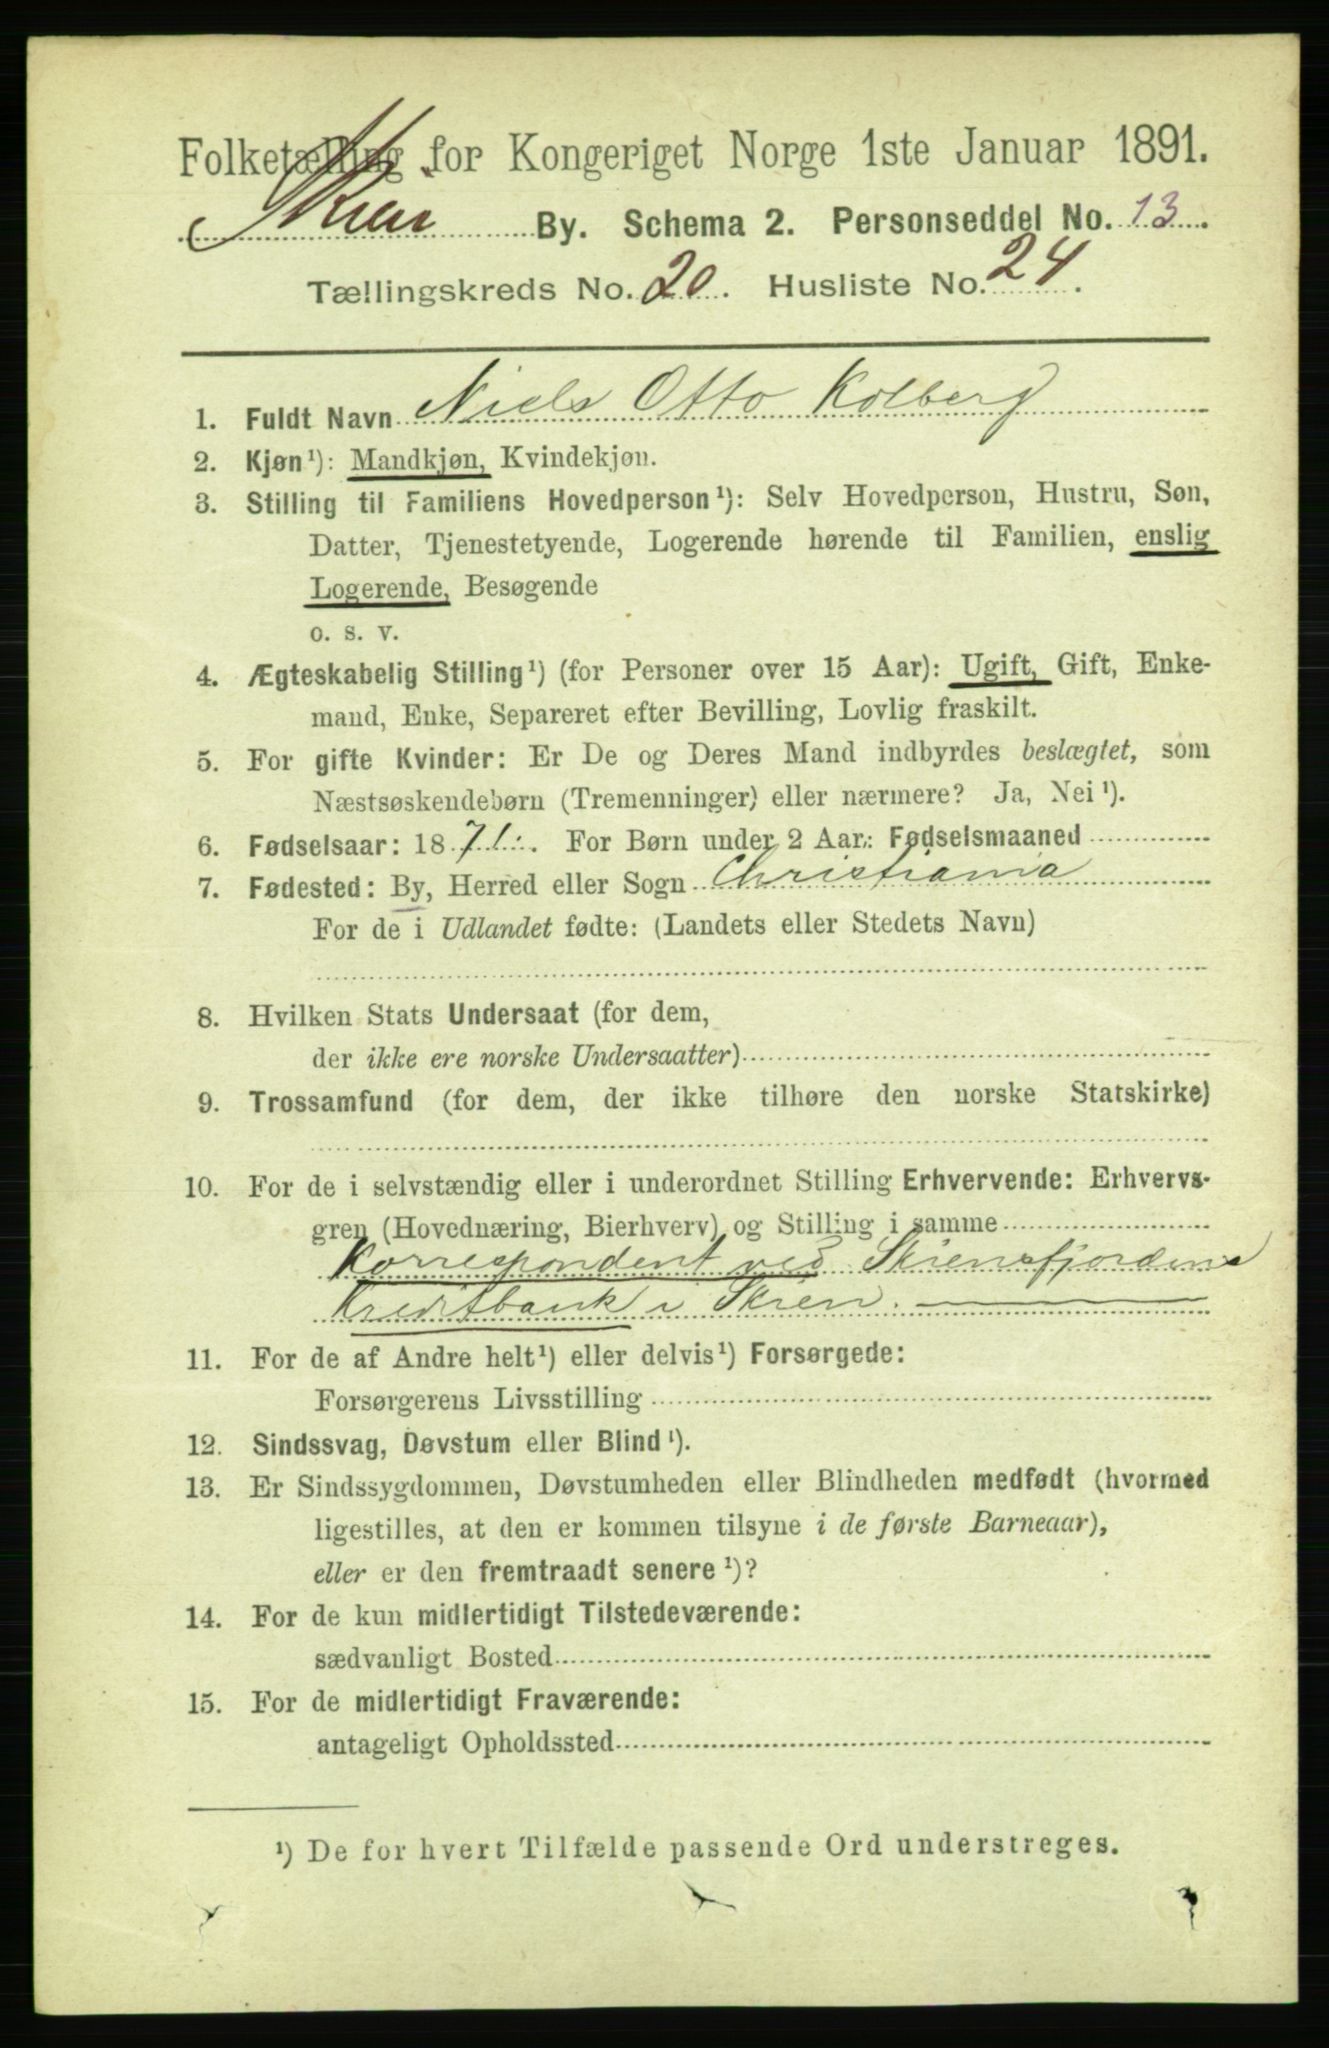 Folketælling for Kongeriget Norge 1ste Januar 1891.
Skien By. Schema 2. Personseddel No. 13.
Tællingskreds No. 20. Husliste No. 24.
1. Fuldt Navn Niels Otto Kolberg
2. Kjøn¹): Mandkjøn, Kvindekjøn.
3. Stilling til Familiens Hovedperson¹): Selv Hovedperson, Hustru, Søn,
Datter, Tjenestetyende, Logerende hørende til Familien, enslig
Logerende, Besøgende
o. s. v.
4. Ægteskabelig Stilling¹) (for Personer over 15 Aar): Ugift, Gift, Enke-
mand, Enke, Separeret efter Bevilling, Lovlig fraskilt.
5. For gifte Kvinder: Er De og Deres Mand indbyrdes beslægtet, som
Næstsøskendebørn (Tremenninger) eller nærmere? Ja, Nei¹).
6. Fødselsaar: 1871. For Børn under 2 Aar: Fødselsmaaned
7. Fødested: By, Herred eller Sogn Christiania
For de i Udlandet fødte: (Landets eller Stedets Navn)
8. Hvilken Stats Undersaat (for dem,
der ikke ere norske Undersaatter)
9. Trossamfund (for dem, der ikke tilhøre den norske Statskirke)
10. For de i selvstændig eller i underordnet Stilling Erhvervende: Erhvervs-
gren (Hovednæring, Bierhverv) og Stilling i samme
Korrespondent ved Skiensfjordens
Kreditbank i Skien.
11. For de af Andre helt¹) eller delvis¹) Forsørgede:
Forsørgerens Livsstilling
12. Sindssvag, Døvstum eller Blind¹).
13. Er Sindssygdommen, Døvstumheden eller Blindheden medfødt (hvormed
ligestilles, at den er kommen tilsyne i de første Barneaar),
eller er den fremtraadt senere¹)?
14. For de kun midlertidigt Tilstedeværende:
sædvanligt Bosted
15. For de midlertidigt Fraværende:
antageligt Opholdssted
¹) De for hvert Tilfælde passende Ord understreges.